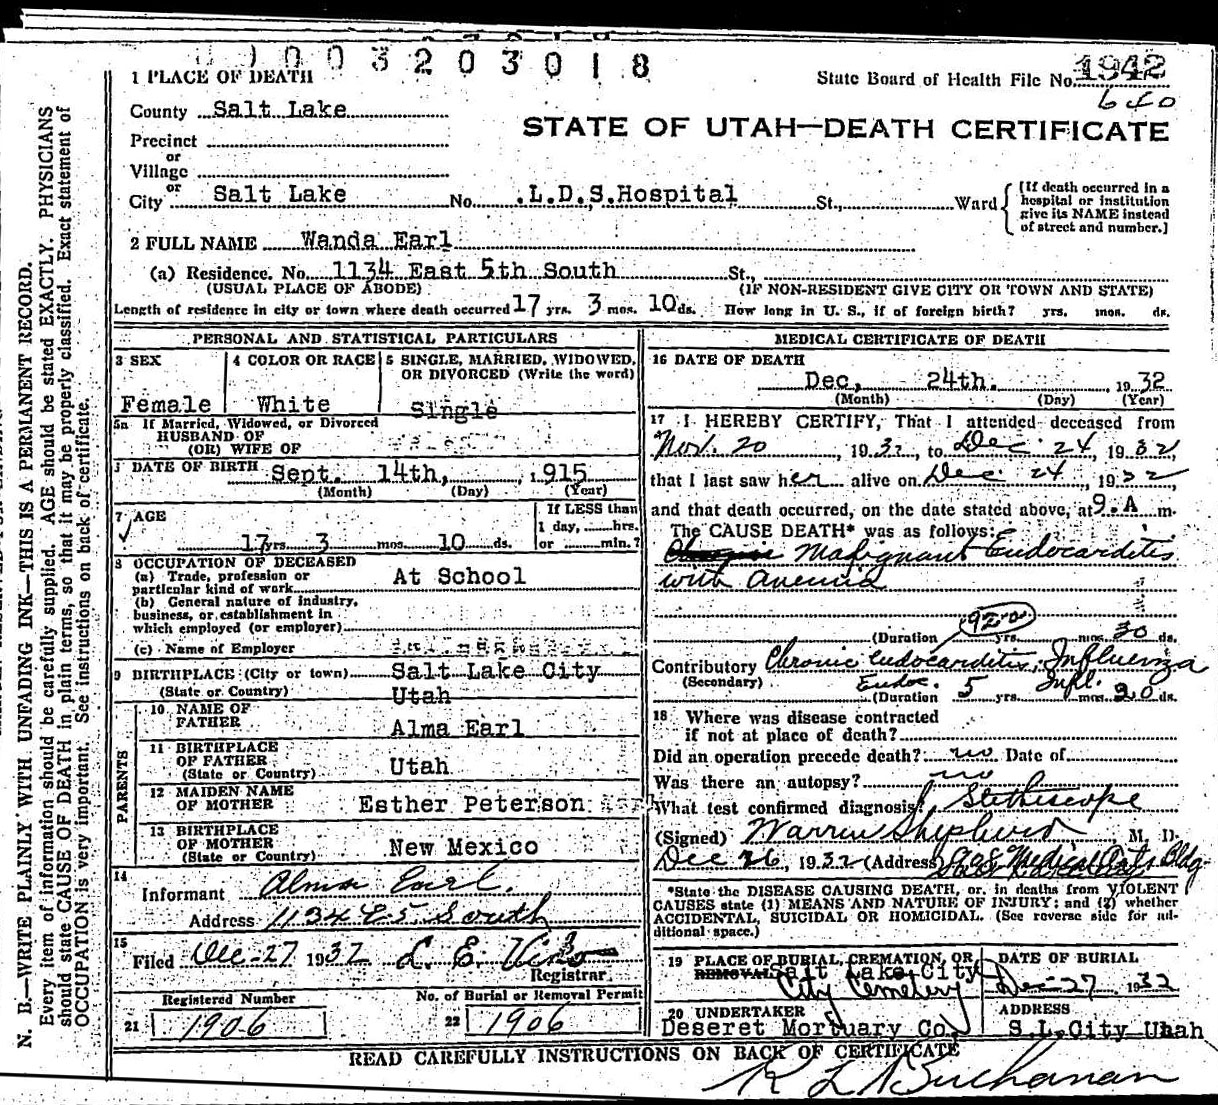 003203018
1 PLACE OF DEATH
State Board of Health File No. 1942
640
County Salt Lake
STATE OF UTAH—DEATH CERTIFICATE
Precinct
or
Village
or
City Salt Lake No. L.D.S.Hospital St., Ward
[If death occurred in a
hospital or institution
give its NAME instead
of street and number.]
2 FULL NAME Wanda Earl
(a) Residence. No. 1134 East 5th South St.,
(USUAL PLACE OF ABODE) (IF NON-RESIDENT GIVE CITY OR TOWN AND STATE)
Length of residence in city or town where death occurred 17 yrs. 3 mos. 10 ds. How long in U. S., if of foreign birth? yrs. mos. ds.
PERSONAL AND STATISTICAL PARTICULARS
3 SEX
Female
4 COLOR OR RACE
White
5 SINGLE, MARRIED, WIDOWED,
OR DIVORCED (Write the word)
Single
5a If Married, Widowed, or Divorced
HUSBAND OF
(OR) WIFE OF
DATE OF BIRTH Sept. 14th, 1915
(Month) (Day) (Year)
7 AGE
17 yrs. 3 mos. 10 ds.
If LESS than
1 day, hrs.
or min.?
8 OCCUPATION OF DECEASED
(a) Trade, profession or
particular kind of work At School
(b) General nature of industry,
business, or establishment in
which employed (or employer)
(c) Name of Employer
9 BIRTHPLACE (City or town) Salt Lake City
(State or Country) Utah
PARENTS
10 NAME OF
FATHER Alma Earl
11 BIRTHPLACE
OF FATHER
(State or Country) Utah
12 MAIDEN NAME
OF MOTHER Esther Peterson
13 BIRTHPLACE
OF MOTHER
(State or Country) New Mexico
14
Informant Alma Earl.
Address 1134 E 5 South
15
Filed Dec-27 1932 L. E.
Registrar
Registered Number
21 1906
No. of Burial or Removal Permit
22 1906
MEDICAL CERTIFICATE OF DEATH
16 DATE OF DEATH
Dec, 24th. 1932
(Month) (Day) (Year)
17 I HEREBY CERTIFY, That I attended deceased from
Nov. 20, 1932, to Dec. 24, 1932,
that I last saw her alive on Dec. 24, 1932
and that death occurred, on the date stated above, at 9. A m.
The CAUSE DEATH* was as follows:
Malignant Endocarditis
with anemia
92a
(Duration yrs. mos. 30 ds.
Contributory Chronic Endocarditis, Influenza
(Secondary) Endo. Infl.
(Duration 5 yrs. mos. 30 ds.
18 Where was disease contracted
if not at place of death?
Did an operation precede death? no Date of
Was there an autopsy? no
What test confirmed diagnosis? Stethiscope
(Signed) Warren Shepherd M. D.
Dec 26, 1932 (Address) Medical Arts Bldg.
*State the DISEASE CAUSING DEATH, or, in deaths from VIOLENT
CAUSES state (1) MEANS AND NATURE OF INJURY; and (2) whether
ACCIDENTAL, SUICIDAL OR HOMICIDAL. (See reverse side for ad-
ditional space.)
19 PLACE OF BURIAL, CREMATION, OR
REMOVAL Salt Lake City
City Cemetery
DATE OF BURIAL
Dec-27 1932
20 UNDERTAKER
Deseret Mortuary Co.
ADDRESS
S.L.City Utah
READ CAREFULLY INSTRUCTIONS ON BACK OF CERTIFICATE
K L Buchanan
N. B.—WRITE PLAINLY WITH UNFADING INK—THIS IS A PERMANENT RECORD.
Every item of information should be carefully supplied. AGE should be stated EXACTLY. PHYSICIANS
should state CAUSE OF DEATH in plain terms, so that it may be properly classified. Exact statement of
OCCUPATION is very important. See instructions on back of certificate.